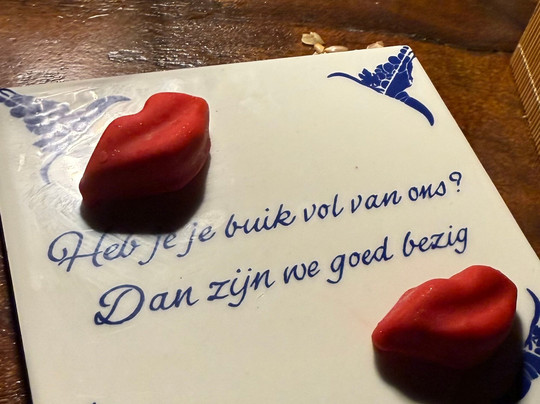 Heb je je buik vol van ons?
Dan zijn we goed bezig